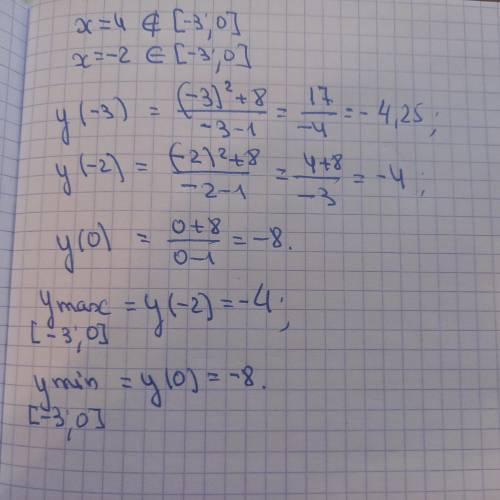 x=4 ∉ [-3;0]
x=-2 ∈ [-3;0]
y(-3) = ((-3)²+8)/(-3-1) = 17/(-4) = -4,25;
y(-2) = ((-2)²+8)/(-2-1) = (4+8)/(-3) = -4;
y(0) = (0+8)/(0-1) = -8.
ymax = y(-2) = -4;
[-3;0]
ymin = y(0) = -8.
[-3;0]